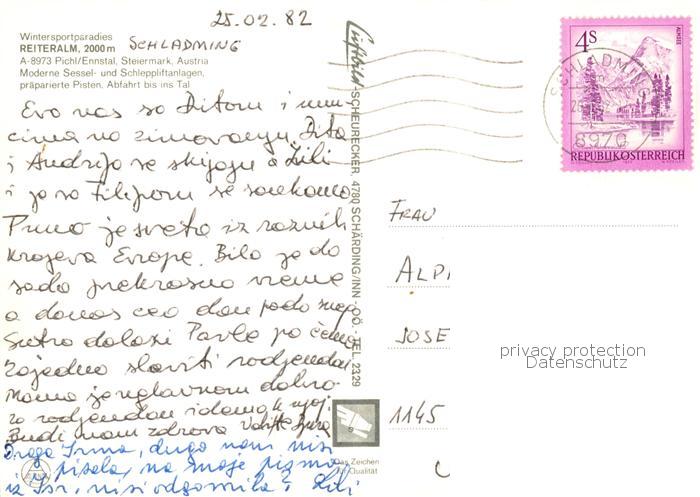 25.02.82
Wintersportparadies
REITERALM, 2000 m SCHLADMING
A-8973 Pichl/Ennstal, Steiermark, Austria
Moderne Sessel- und Schleppliftanlagen,
präparierte Pisten, Abfahrt bis ins Tal
Evo nas sa Ditom i unu-
cima na zimovanju. Dita
i Andrija se skijaju a Lili
i ja sa Filipom se sankamo
Puno je sveta iz raznih
krajeva Evrope. Bilo je do
sada prekrasno vreme
a danas ceo dan pada sneg
Sutra dolazi Pavle pa ćemo
zajedno slaviti rodjendan
Mama je uglavnom dobro
za rodjendan idemo k njoj.
Budi nam zdrava Vaša
Draga Irma, dugo nam nisi
pisala, na moje pismo
iz Isr. nisi odgovorila. Lili
Luftbild-SCHEURECKER, 4780 SCHÄRDING/INN - OÖ. - TEL. 2329
Das Zeichen
für Qualität
4S
ALMSEE
REPUBLIK ÖSTERREICH
SCHLADMI
8970
FRAU
ALPI
JOSE
1145
privacy protection
Datenschutz